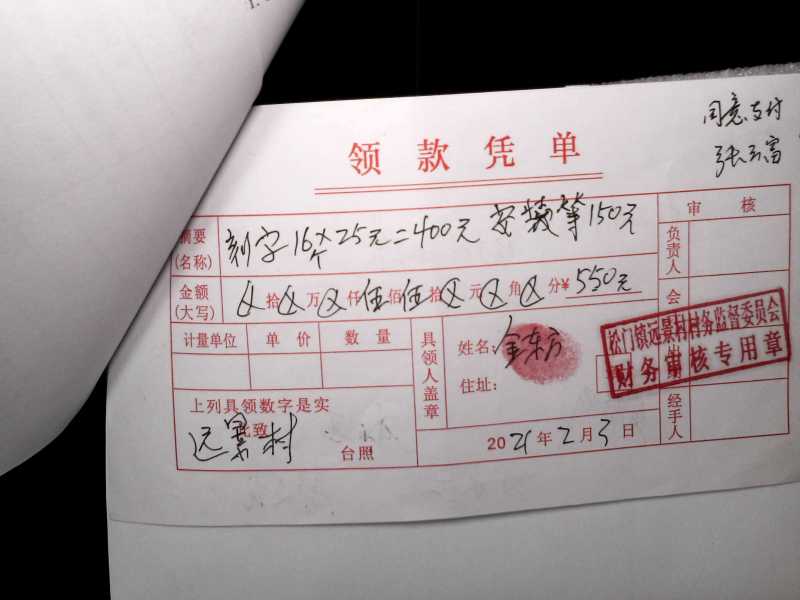 同意支付
张云富
领款凭单
摘要(名称) 刻字16个×25元=400元 安装等150元
审核
负责人
金额(大写) 拾 万 仟伍佰伍拾 元 角 分¥550元
会
计量单位 单价 数量
具领人盖章
姓名: 金东方
住址:
松门镇远景村村务监督委员会
财务审核专用章
上列具领数字是实
此致
远景村
台照
2021年2月3日
经手人